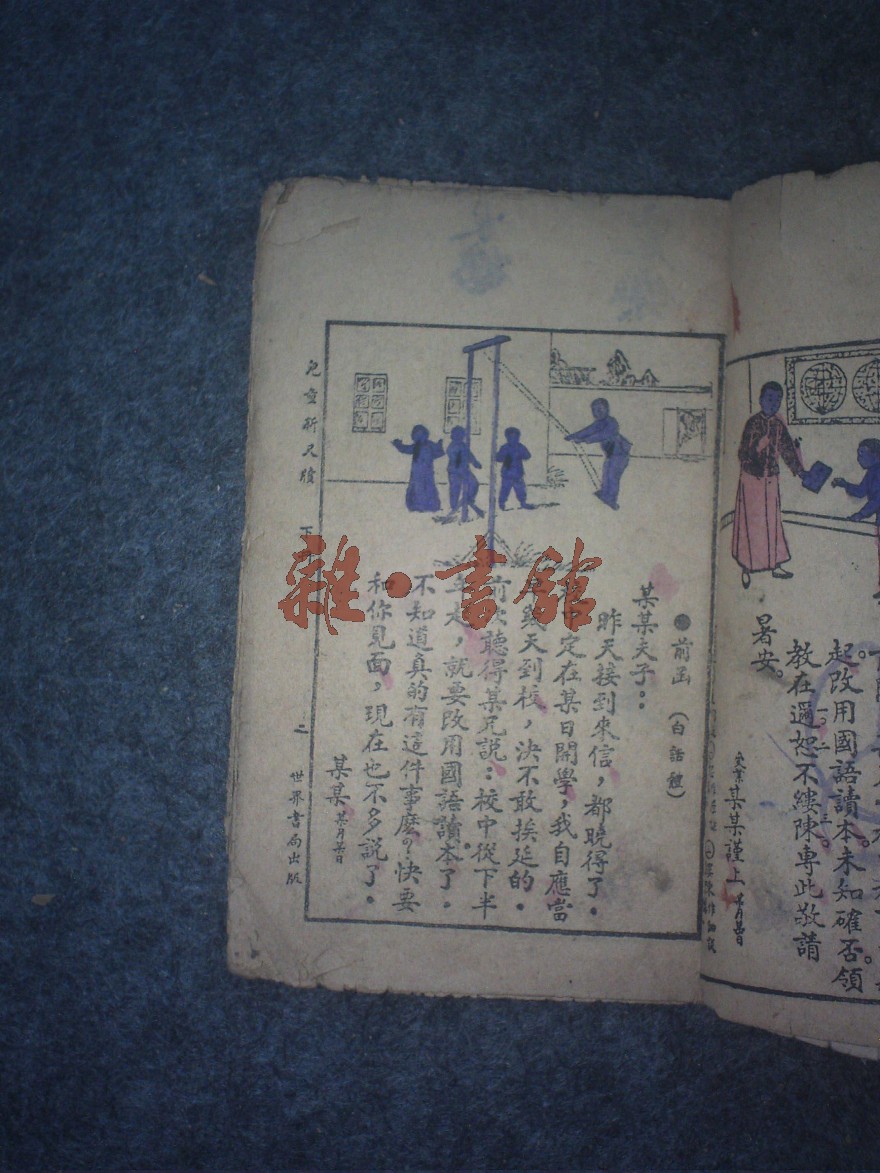 起改用國語讀本未知確否領
教在邇恕不縷陳專此敬請
暑安。
某某謹上
●前函（白話體）
某某夫子：
昨天接到來信，都曉得了．
定在某日開學，我自應當
幾天到校，決不敢挨延的．
前次聽得某兄說：校中從下半
年起，就要改用國語讀本了．
不知道真的有這件事麼？快要
和你見面，現在也不多說了．
某某 某月某日
兒童新尺牘
下冊
二
世界書局出版
雜·書館